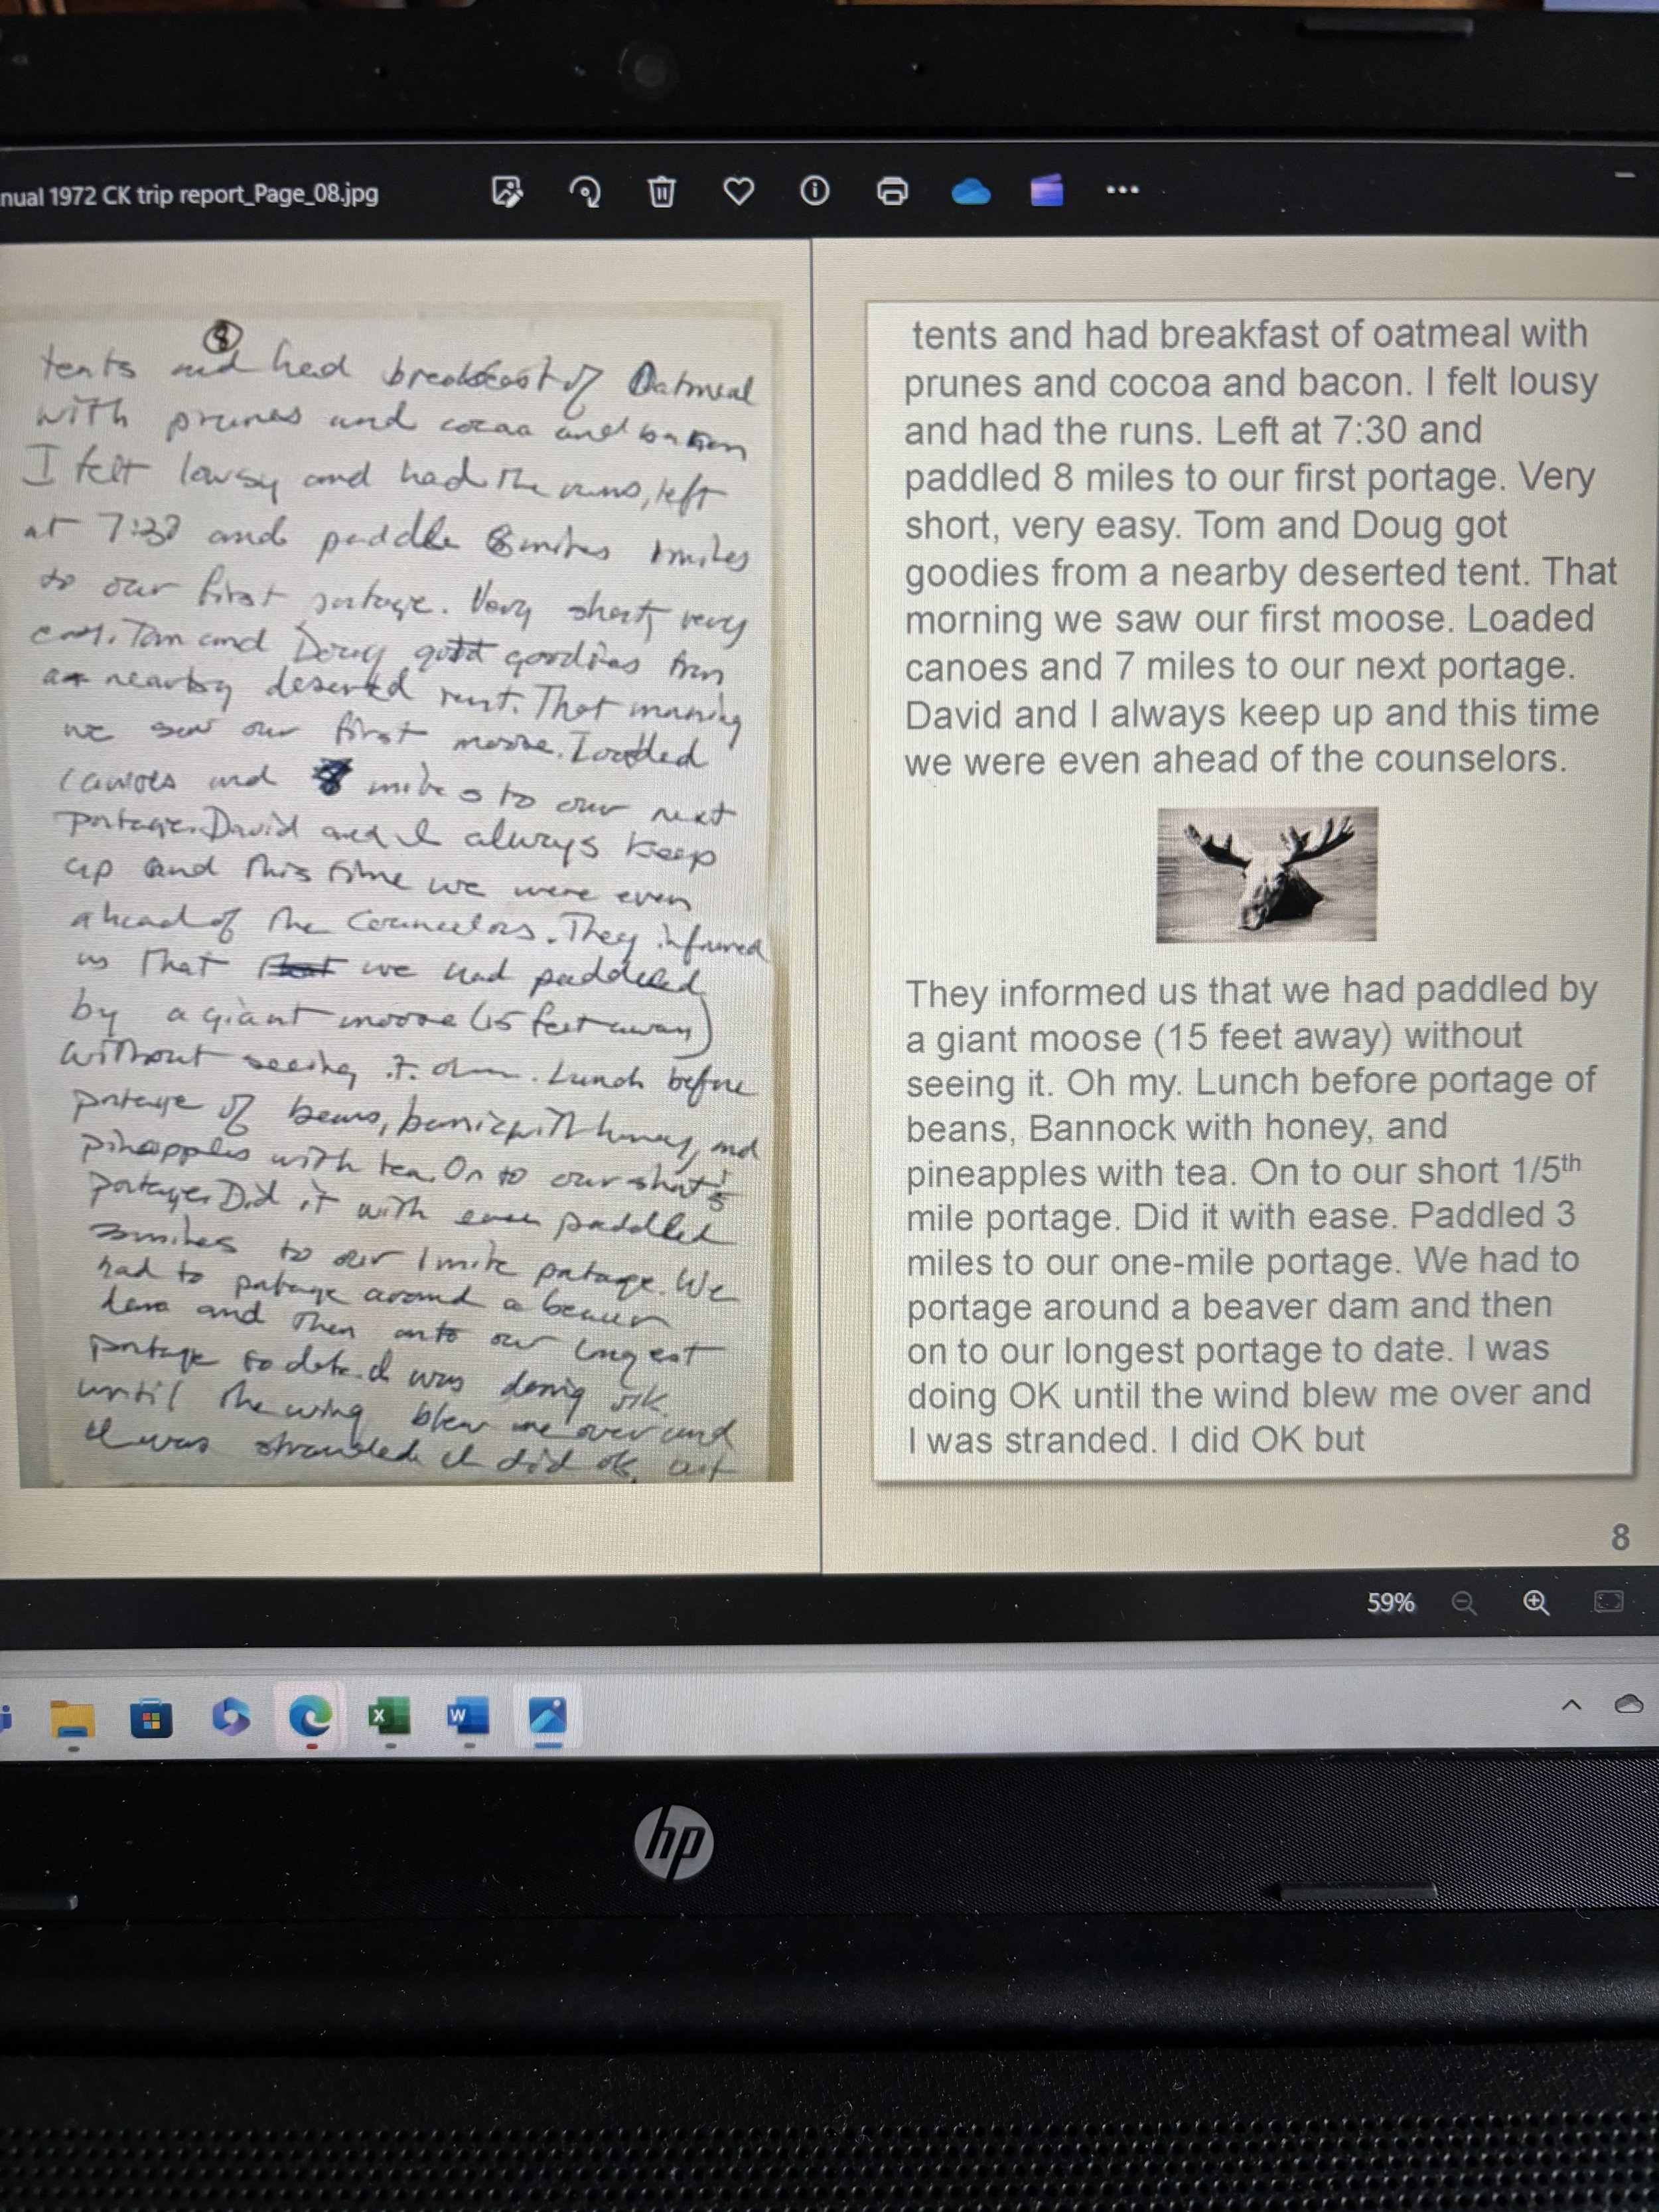 nual 1972 CK trip report_Page_08.jpg
8
tents and had breakfast of Oatmeal
with prunes and cocoa and bacon
I felt lousy and had the runs, left
at 7:30 and paddle 8 miles miles
to our first portage. Very short, very
easy. Tom and Doug gott goodies from
a nearby deserted tent. That morning
we saw our first moose. Loaded
canoes and miles to our next
portage. David and I always keep
up and this time we were even
ahead of the Councelors. They informed
us that that we had paddled
by a giant moose (15 feet away)
without seeing it. Lunch before
portage of beans, with honey, and
pineapples with tea. On to our short 1/5
portage. Did it with paddled
3 miles to our 1 mile portage. We
had to portage around a beaver
dam and then onto our longest
portage to date. I was doing ok
until the wing blew me over and
I was stranded I did ok but
tents and had breakfast of oatmeal with
prunes and cocoa and bacon. I felt lousy
and had the runs. Left at 7:30 and
paddled 8 miles to our first portage. Very
short, very easy. Tom and Doug got
goodies from a nearby deserted tent. That
morning we saw our first moose. Loaded
canoes and 7 miles to our next portage.
David and I always keep up and this time
we were even ahead of the counselors.
They informed us that we had paddled by
a giant moose (15 feet away) without
seeing it. Oh my. Lunch before portage of
beans, Bannock with honey, and
pineapples with tea. On to our short 1/5th
mile portage. Did it with ease. Paddled 3
miles to our one-mile portage. We had to
portage around a beaver dam and then
on to our longest portage to date. I was
doing OK until the wind blew me over and
I was stranded. I did OK but
8
59%
X
W
hp